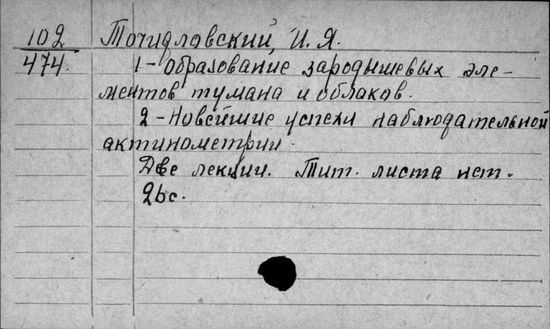 102 Точидловский, И. Я.
474. 1 - Образование зародышевых эле-
ментов тумана и облаков.
2 - Новейшие успехи наблюдательной
актинометрии.
Две лекции. Тит. листа нет.
26с.